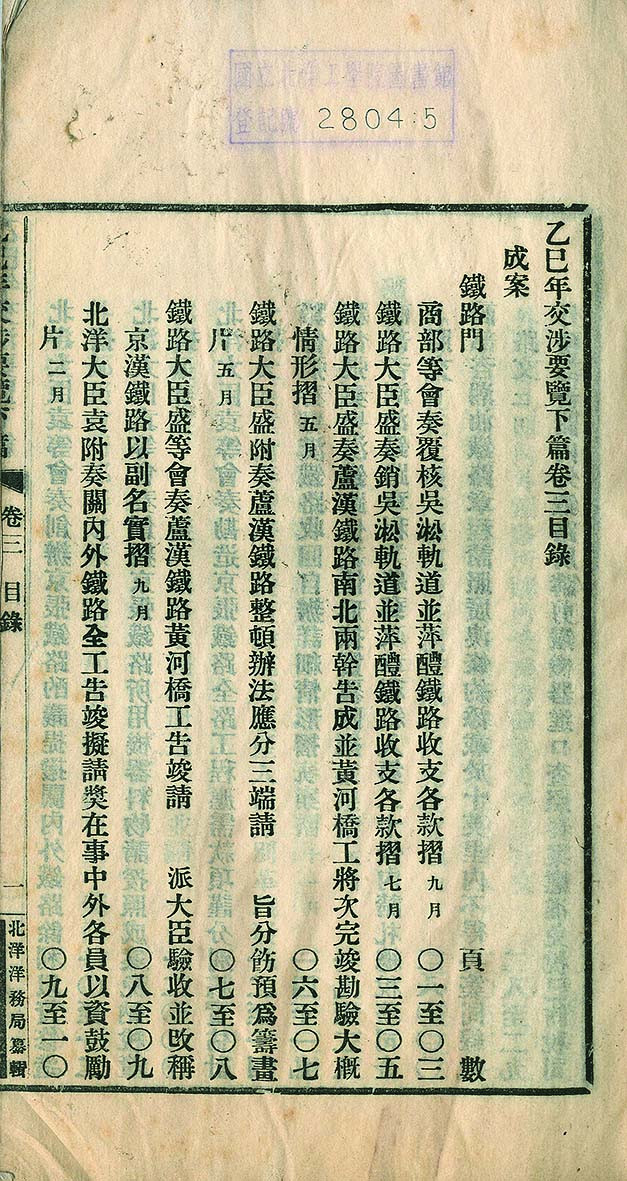 2804:5
乙巳年交涉要覽下篇卷三目錄
成案
鐵路門 頁數
商部等會奏覆核吳淞軌道並萍醴鐵路收支各款摺 九月 〇一至〇三
鐵路大臣盛奏銷吳淞軌道並萍醴鐵路收支各款摺 七月 〇三至〇五
鐵路大臣盛奏蘆漢鐵路南北兩幹告成並黃河橋工將次完竣勘驗大概
情形摺 五月 〇六至〇七
鐵路大臣盛附奏蘆漢鐵路整頓辦法應分三端請 旨分飭預爲籌畫
片 五月 〇七至〇八
鐵路大臣盛等會奏蘆漢鐵路黃河橋工告竣請 派大臣驗收並改稱
京漢鐵路以副名實摺 九月 〇八至〇九
北洋大臣袁附奏關內外鐵路全工告竣擬請獎在事中外各員以資鼓勵
片 二月 〇九至一〇
乙巳年交涉要覽下篇 卷三 目錄 一 北洋洋務局纂輯